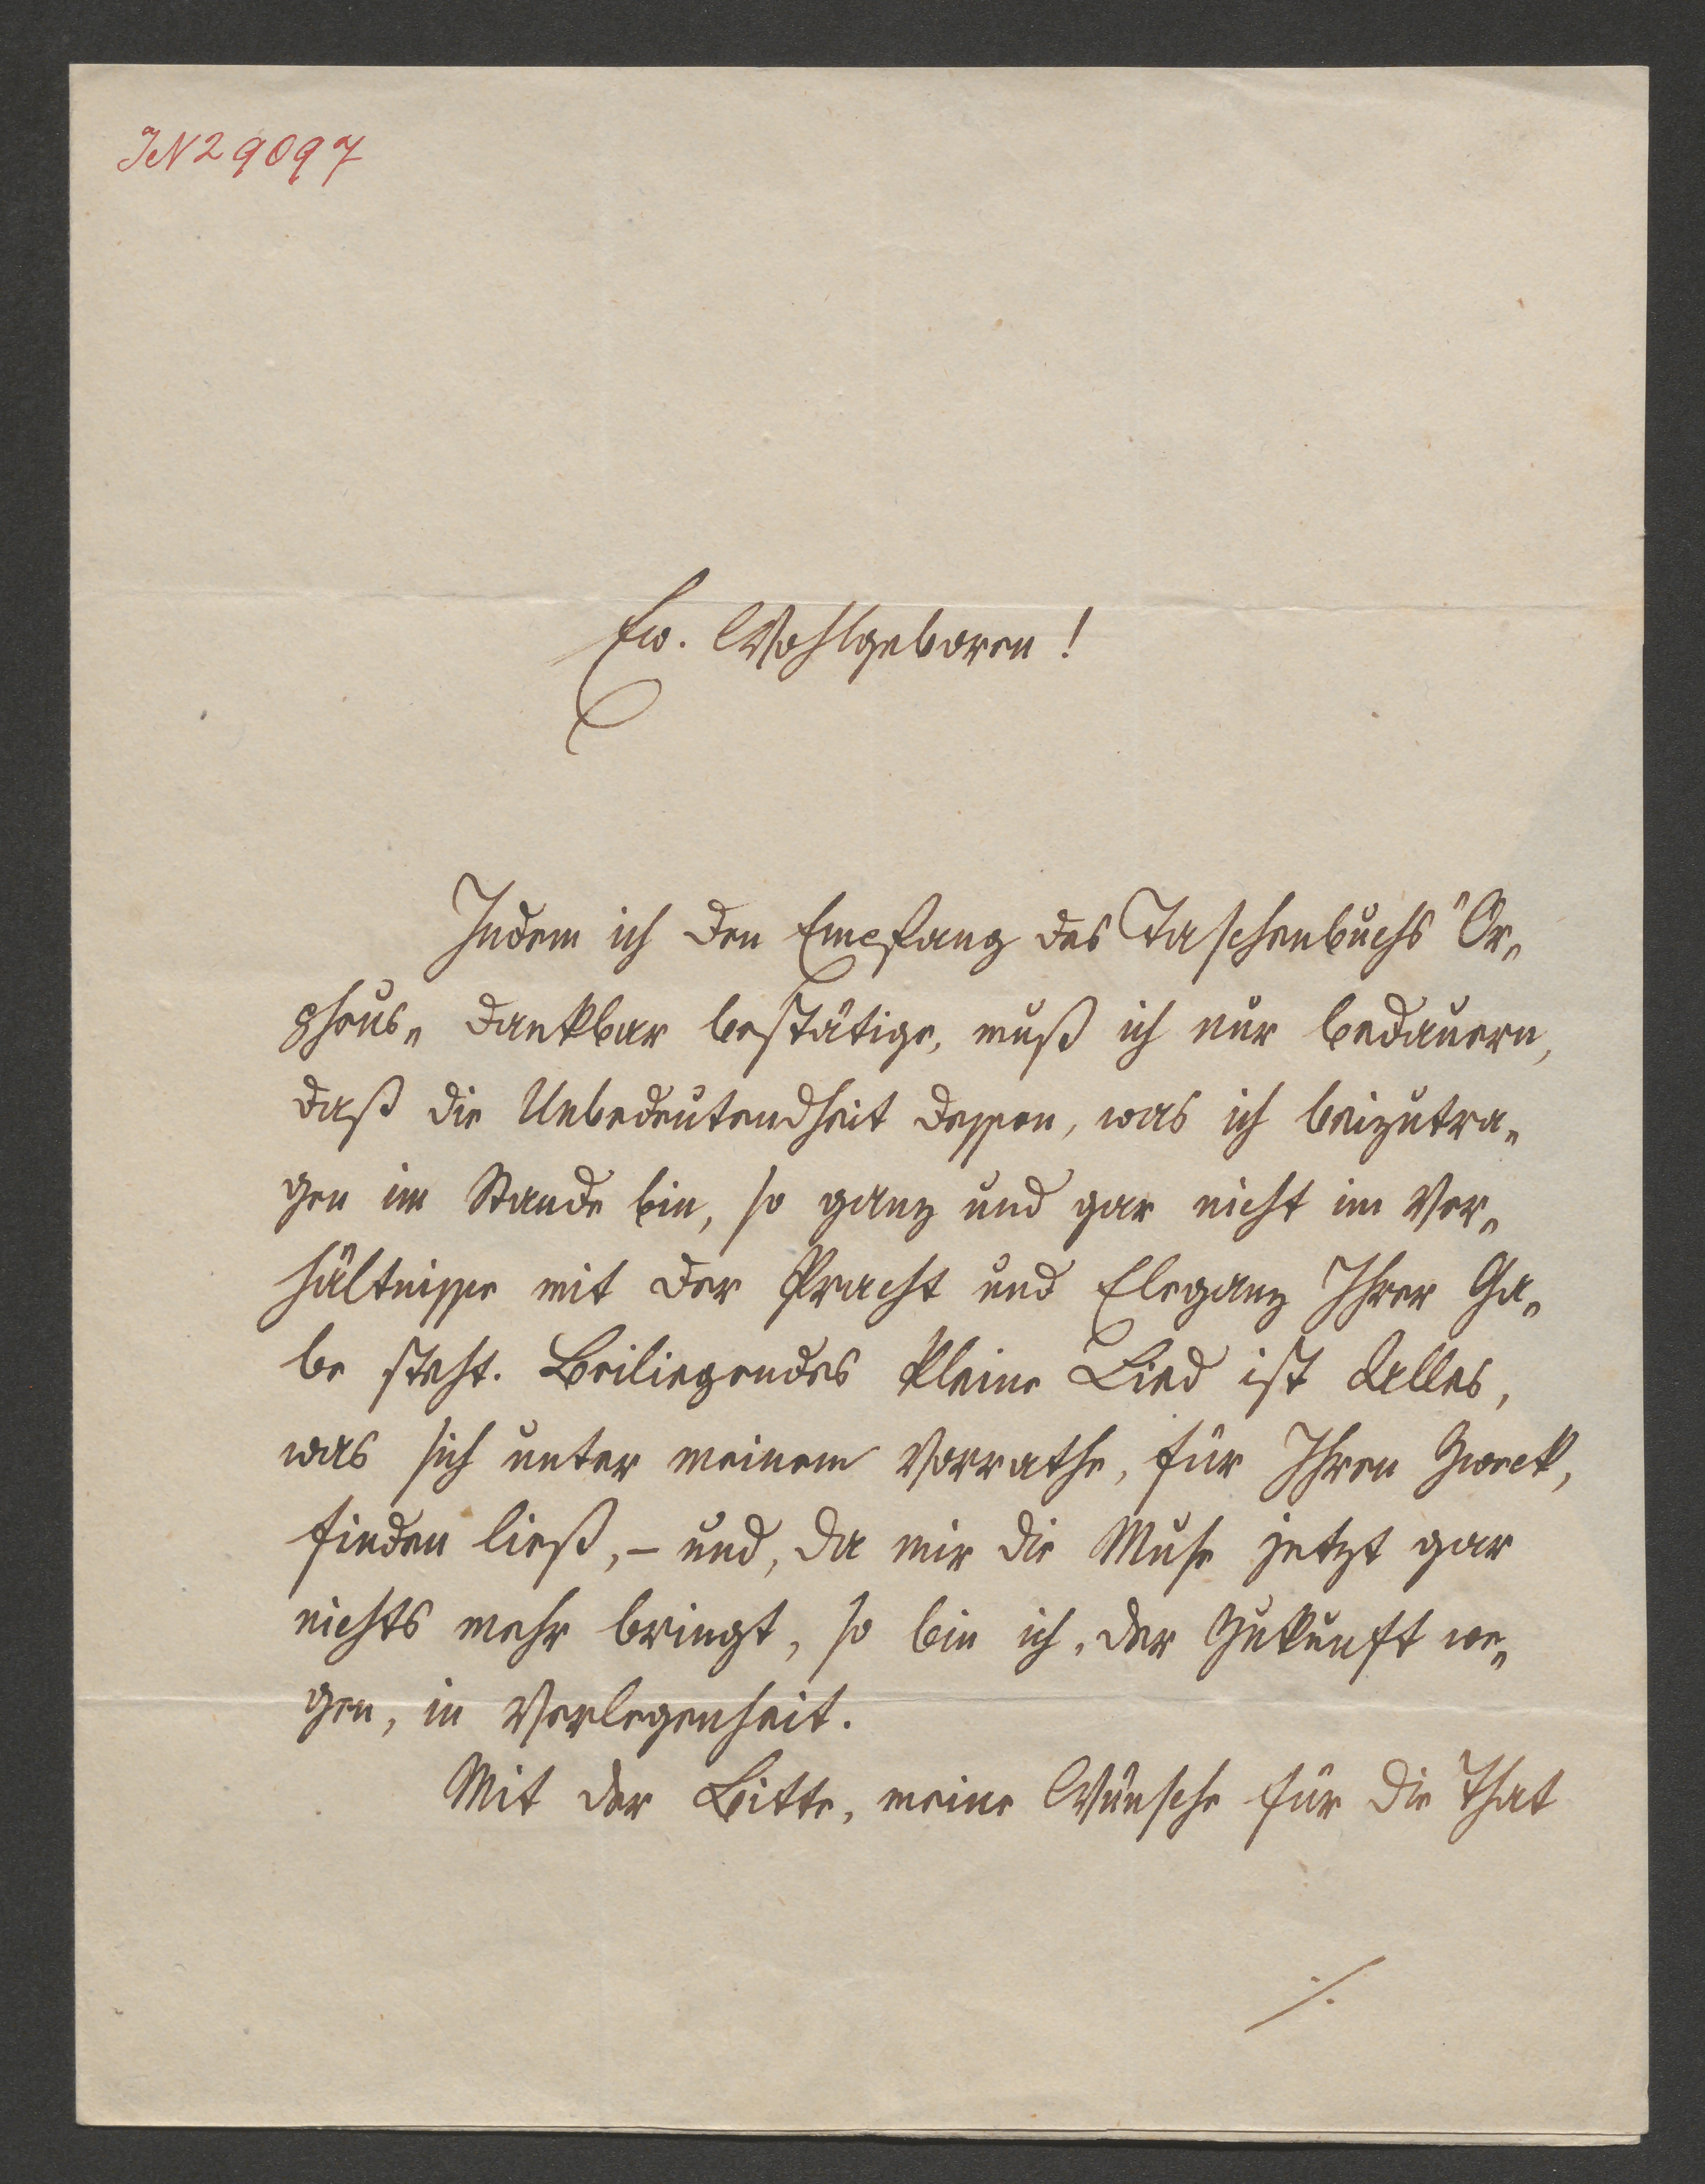 IN 29097
Ew. Wohlgeboren!
Indem ich den Empfang des Taschenbuchs "Or„
pheus„ dankbar bestätige, muß ich nur bedauern,
daß die Unbedeutendheit dessen, was ich beizutra„
gen im Stande bin, so ganz und gar nicht im Ver„
hältnisse mit der Pracht und Eleganz Ihrer Ga„
be steht. Beiliegendes kleine Lied ist Alles,
was sich unter meinem Vorrathe, für Ihren Zweck,
finden ließ, – und, da mir die Muse jetzt gar
nichts mehr bringt, so bin ich, der Zukunft we„
gen, in Verlegenheit.
Mit der Bitte, meine Wünsche für die That
./.